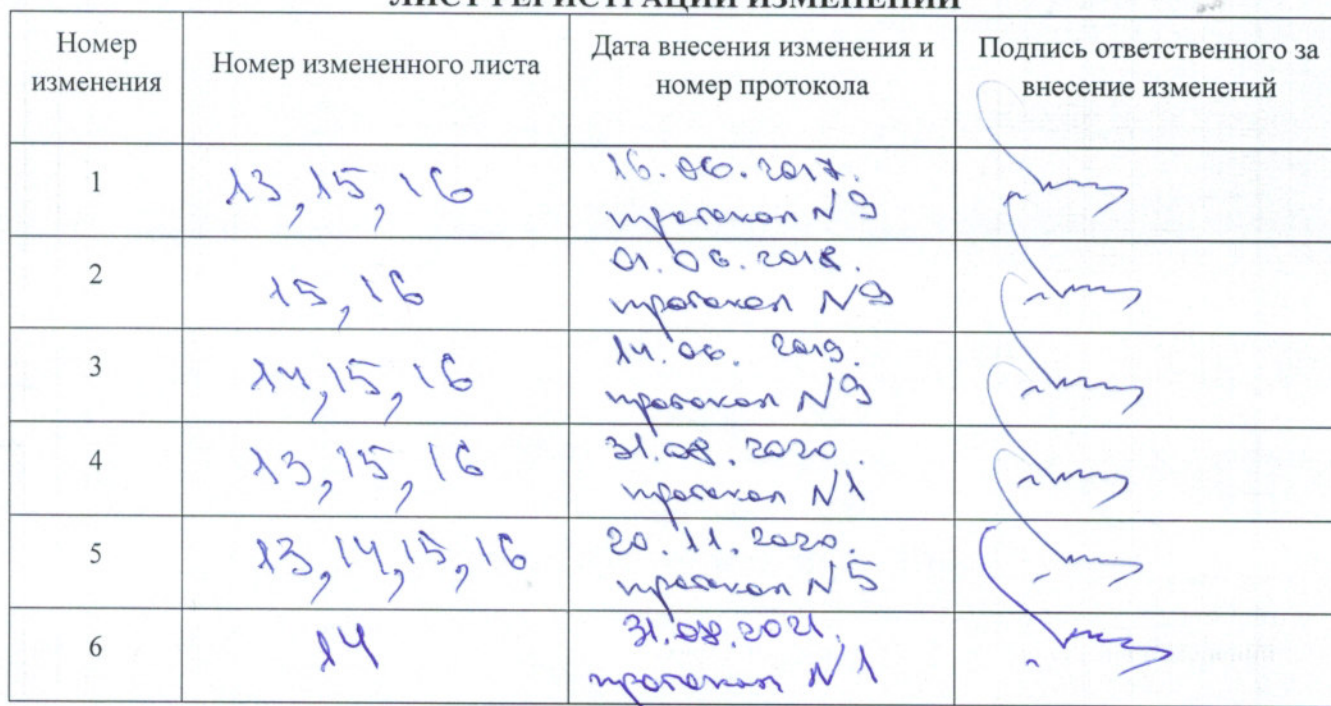 ЛИСТ РЕГИСТРАЦИИ ИЗМЕНЕНИЙ
Номер изменения
Номер измененного листа
Дата внесения изменения и номер протокола
Подпись ответственного за внесение изменений
1
13, 15, 16
16.06.2017.
протокол №9
2
15, 16
01.06.2018.
протокол №9
3
14, 15, 16
14.06.2019.
протокол №9
4
13, 15, 16
31.08.2020.
протокол №1
5
13, 14, 15, 16
20.11.2020.
протокол №5
6
14
31.08.2021.
протокол №1